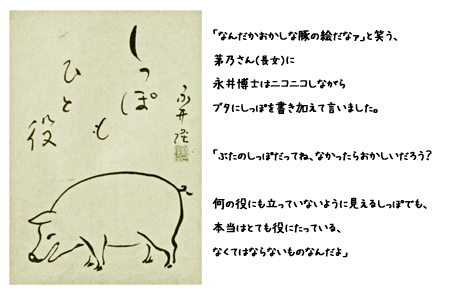 しっぽ
も
ひと
役
永井隆
「なんだかおかしな豚の絵だなァ」と笑う、
茅乃さん(長女)に
永井博士はニコニコしながら
ブタにしっぽを書き加えて言いました。
「ぶたのしっぽだってね、なかったらおかしいだろう?
何の役にも立っていないように見えるしっぽでも、
本当はとても役にたっている、
なくてはならないものなんだよ」